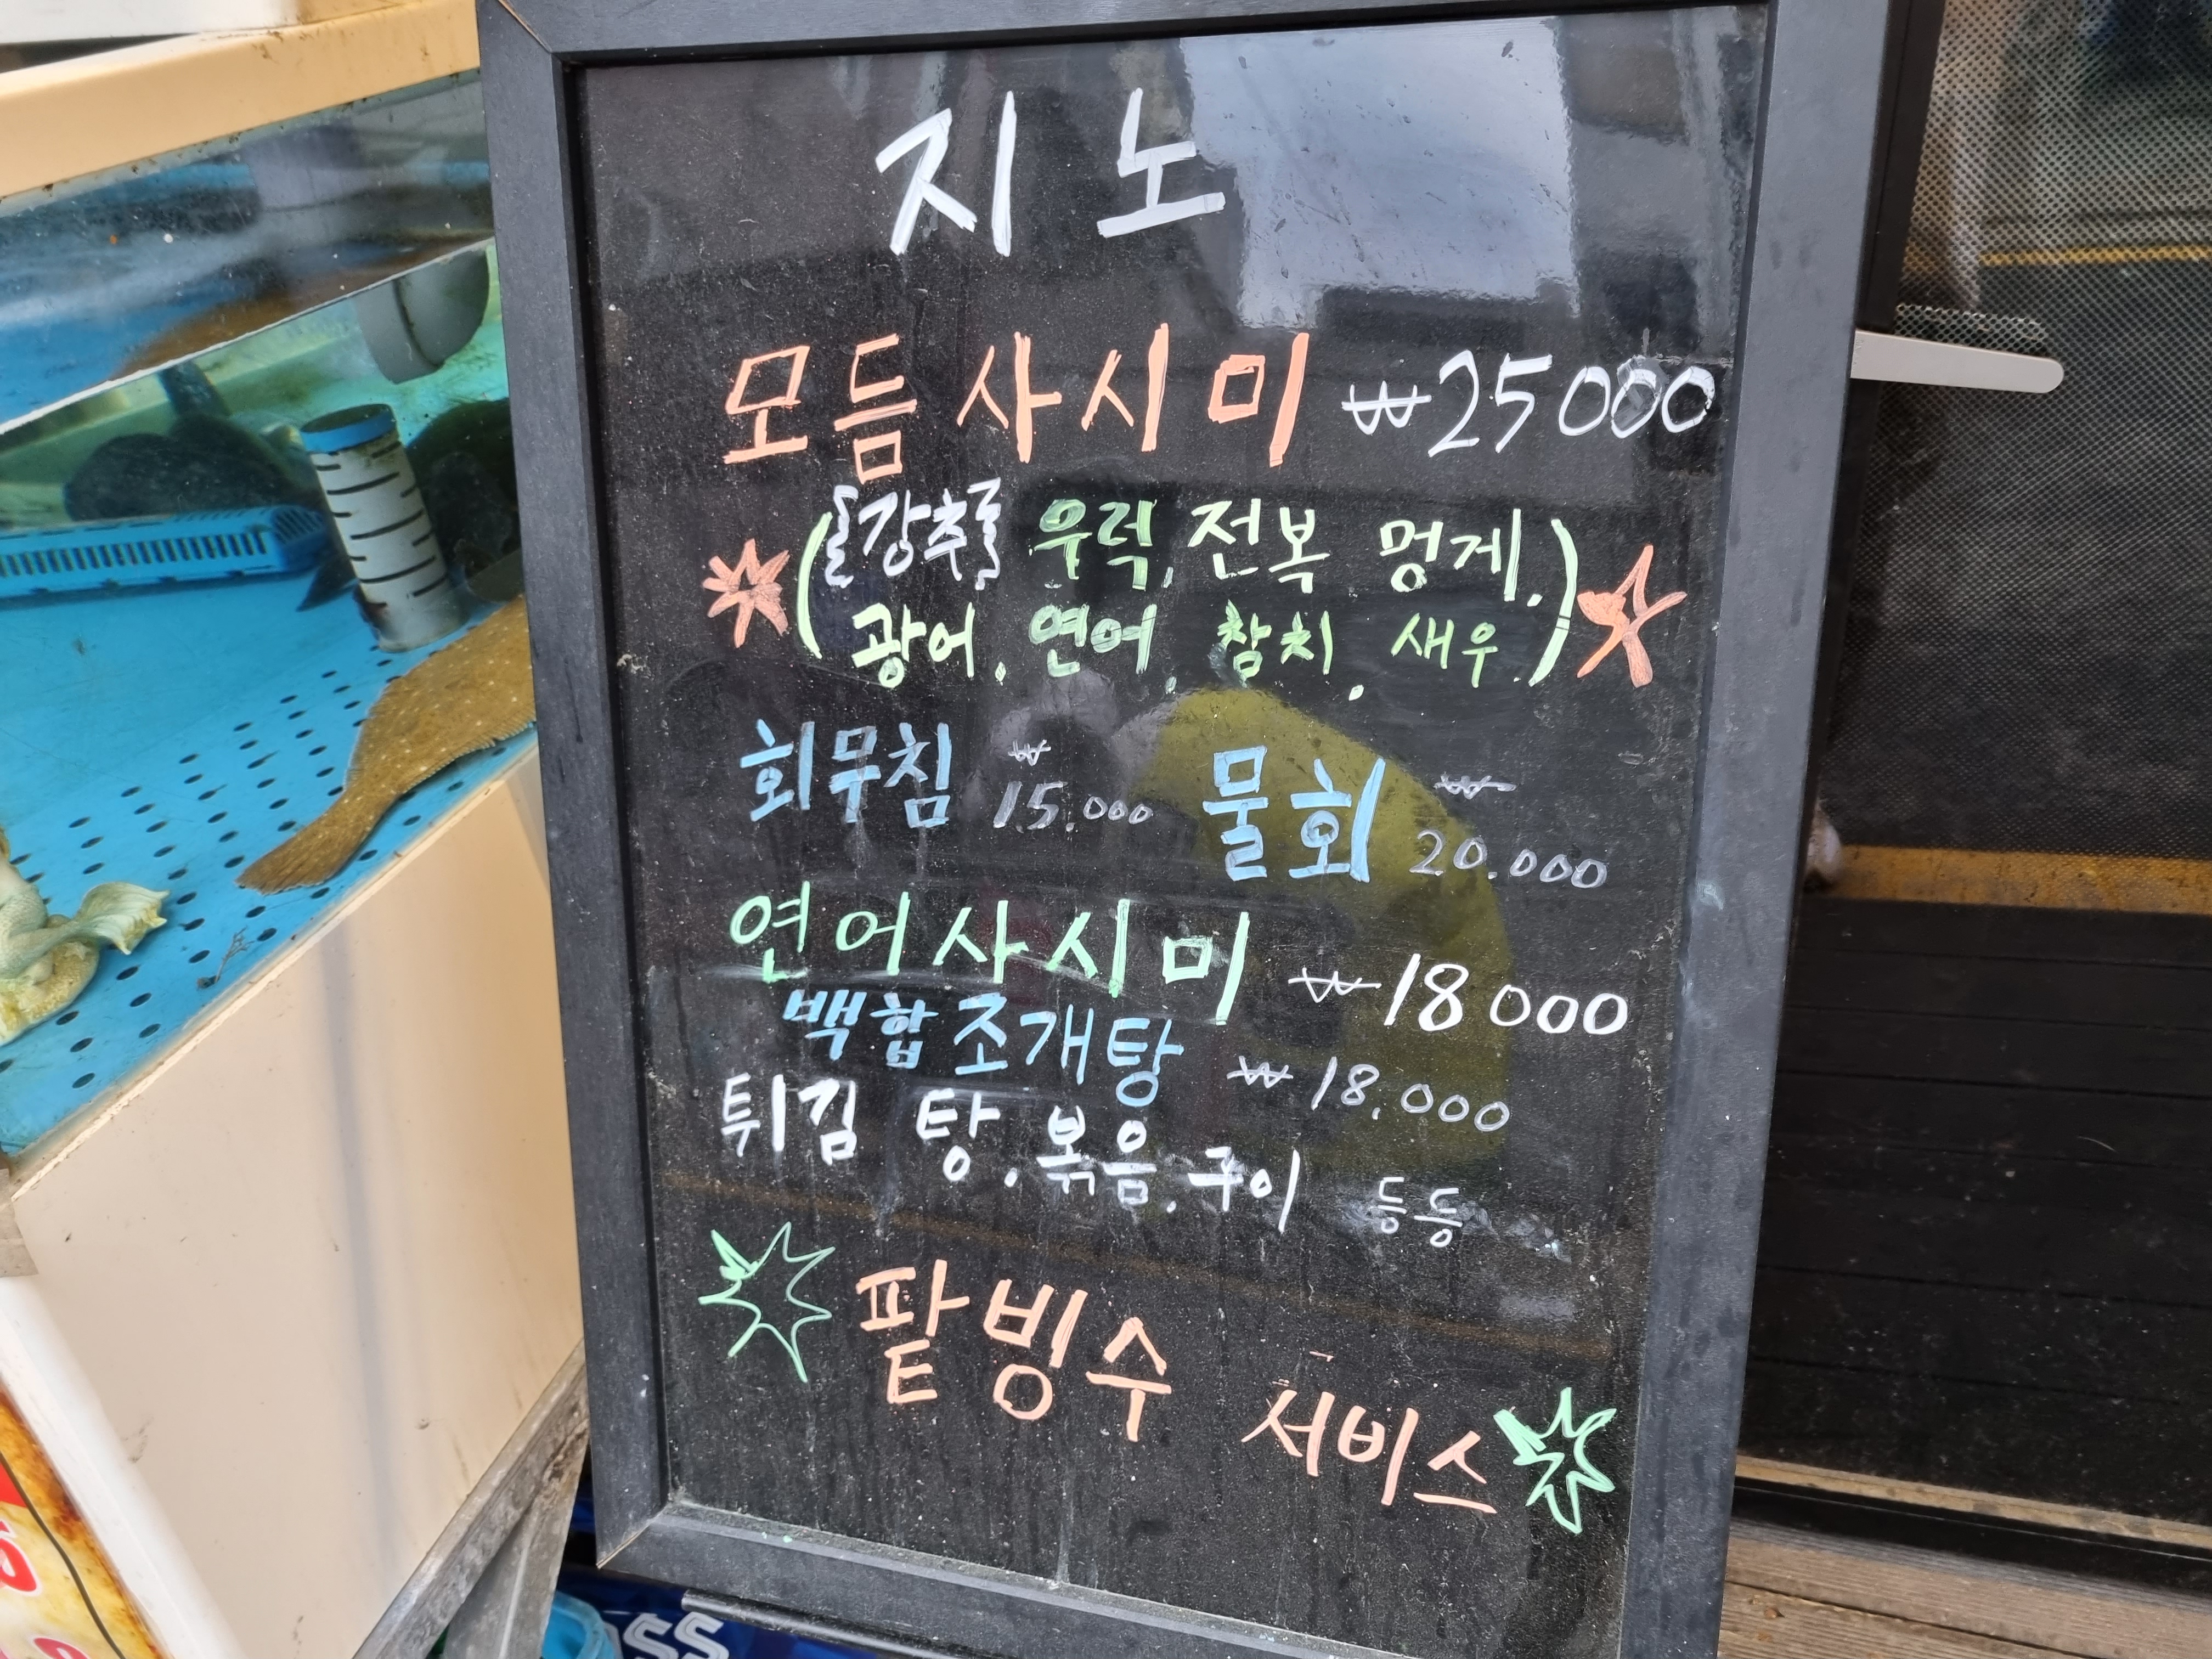 지노
모듬사시미 ₩25000
({강추} 우럭, 전복 멍게.
광어. 연어, 참치, 새우.)
회무침 ₩15.000 물회 ₩20.000
연어사시미 ₩18000
백합조개탕 ₩18.000
튀김 탕.볶음.구이 등등
팥빙수 서비스
ass